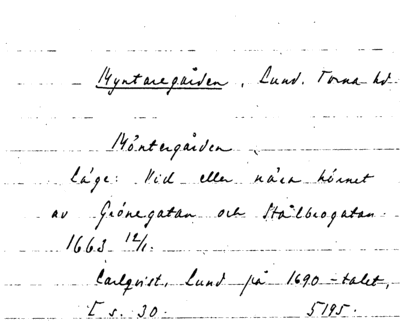 Myntaregården, Lund. Torna hd
Möntergården
läge: Vid eller nära hörnet
av Grönegatan och Stålbrogatan.
1663 12/1.
Carlqvist, Lund på 1690-talet,
I s. 30. 5195.